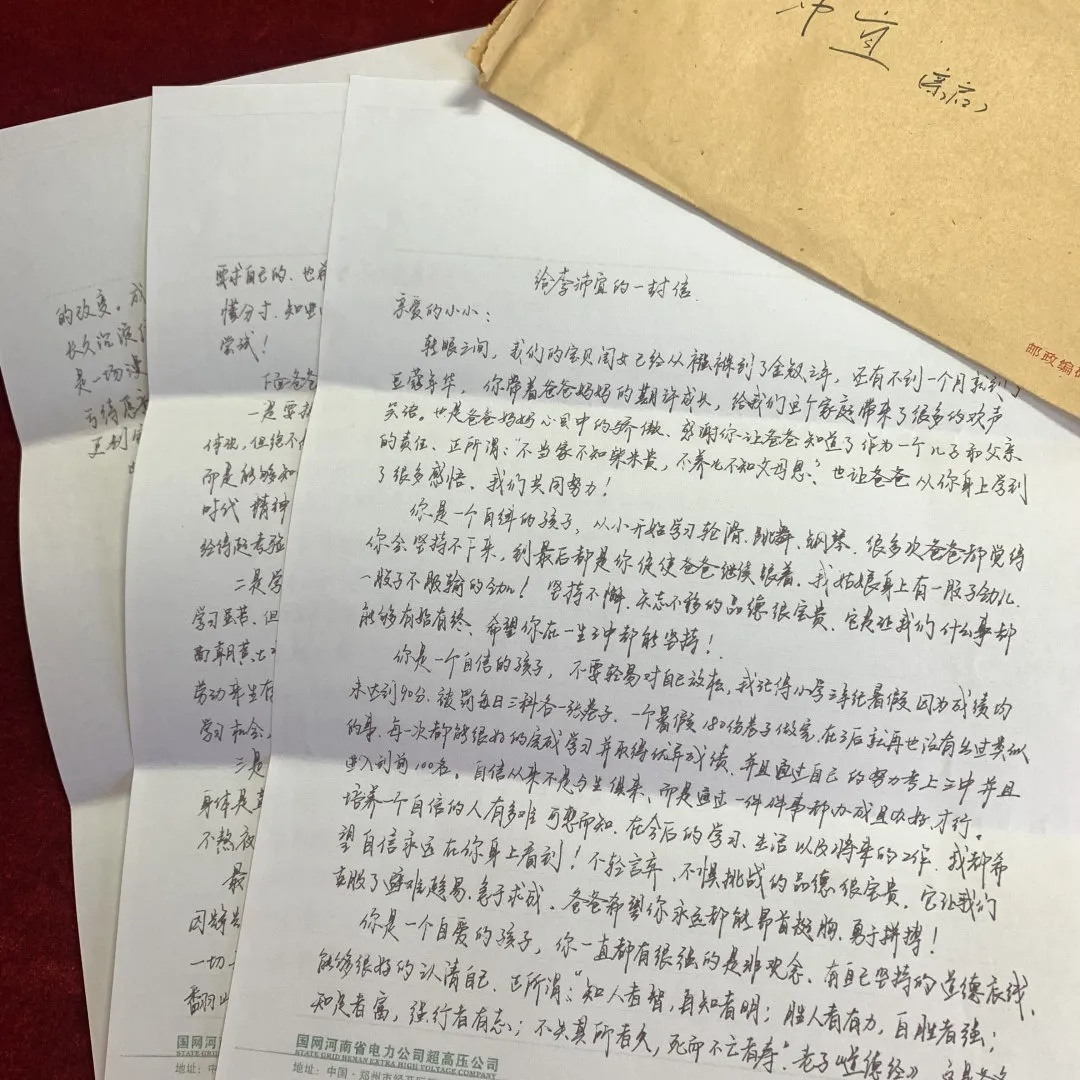 沛宜
亲启
邮政编码
给李沛宜的一封信
亲爱的小小：
转眼之间，我们的宝贝闺女已经从襁褓到了金钗之年，还有不到一个月就到了
豆蔻年华，你带着爸爸妈妈的期许成长，给我们这个家庭带来了很多的欢声
笑语。也是爸爸妈妈心目中的骄傲、感谢你让爸爸知道了作为一个儿子和父亲
的责任、正所谓："不当家不知柴米贵，不养儿不知父母恩"。也让爸爸从你身上学到
了很多感悟、我们共同努力！
你是一个自律的孩子，从小开始学习轮滑、跳舞、钢琴、很多次爸爸都觉得
你会坚持不下来，到最后都是你促使爸爸继续跟着。我姑娘身上有一股子劲儿、
一股子不服输的劲儿！坚持不懈、矢志不移的品德很宝贵、它是让我们什么事都
能够有始有终、希望你在一生之中都能坚持！
你是一个自信的孩子，不要轻易对自己放松，我记得小学三年级暑假因为成绩均
未达到90分、被罚每日三科各一张卷子、一个暑假180份卷子做完、在之后就再也没有出过类似
的事、每一次都能很好的完成学习并取得优异成绩、并且通过自己的努力考上三中并且
进入到前100名。自信从来不是与生俱来、而是通过一件件事都办成且办好才行。
培养一个自信的人有多难可想而知、在今后的学习、生活以及将来的工作、我都希
望自信永远在你身上看到！不轻言弃、不惧挑战的品德很宝贵、它让我们
克服了避难趋易、急于求成、爸爸希望你永远都能昂首挺胸、勇于拼搏！
你是一个自爱的孩子，你一直都有很强的是非观念、有自己坚持的道德底线、
能够很好的认清自己、正所谓："知人者智，自知者明；胜人者有力，自胜者强；
知足者富，强行者有志；不失其所者久，死而不亡者寿"。老子《道德经》
国网河南省电力公司超高压公司
STATE GRID HENAN EXTRA HIGH VOLTAGE COMPANY
地址：中国·郑州市经开
要求自己的、也
懂分寸、知
尝试！
下面爸爸
一是要
体现，但绝不
而是能够知
时代精神
经得起考验
二是学
学习虽苦、但
面朝黄土
劳动来生存
学习机会、
三是
身体是
不熬夜
最
因
一切
翻山
国网河
STATE GRI
地址：中
的改变。成
长久沉淀
是一场
亏待